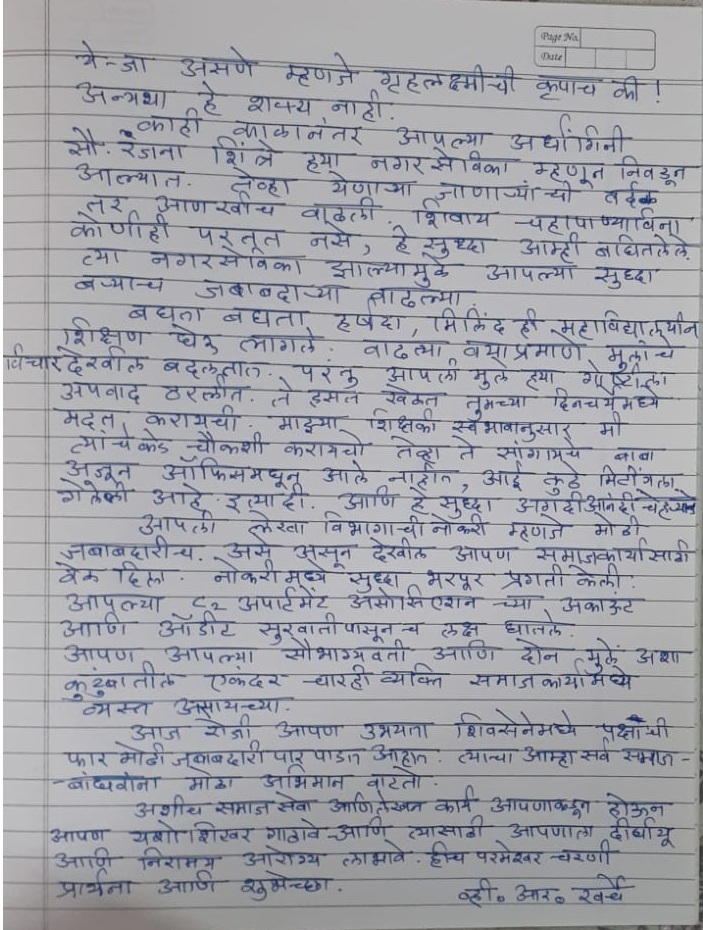 Page No.
Date
ये-जा असणे म्हणजे गृहलक्ष्मीची कृपाच की !
अन्यथा हे शक्य नाही.
काही काळानंतर आपल्या अर्धांगिनी
सौ. रंजना शिंत्रे ह्या नगरसेविका म्हणून निवडून
आल्यात. तेव्हा येणाऱ्या जाणाऱ्यांची वर्दळ
तर आणखीच वाढली. शिवाय चहापाण्याविना
कोणीही परतून नसे, हे सुध्दा आम्ही बघितलेले.
त्या नगरसेविका झाल्यामुळे आपल्या सुध्दा
बऱ्याच जबाबदाऱ्या वाढल्या.
बघता बघता हर्षदा, मिलिंद ही महाविद्यालयीन
शिक्षण घेऊ लागले. वाढत्या वयाप्रमाणे मुलांचे
विचार देखील बदलतात. परंतु आपली मुले ह्या गोष्टीला
अपवाद ठरलीत. ते हसत खेळत तुमच्या दिनचर्येमध्ये
मदत करायची. माझ्या शिक्षकी स्वभावानुसार मी
त्यांचेकडे चौकशी करायचो तेव्हा ते सांगायचे बाबा
अजून ऑफिसमधून आले नाहीत, आई कुठे मिटींगला
गेलेली आहे. इत्यादी. आणि हे सुध्दा अगदी आनंदी चेहऱ्याने
आपली लेखा विभागाची नोकरी म्हणजे मोठी
जबाबदारीच. असे असून देखील आपण समाजकार्यासाठी
वेळ दिला. नोकरीमध्ये सुध्दा भरपूर प्रगती केली.
आपल्या C2 अपार्टमेंट असोसिएशन च्या अकाऊंट
आणि ऑडीट सुरवातीपासूनच लक्ष घातले.
आपण आपल्या सौभाग्यवती आणि दोन मुले अशा
कुटुंबातील एकंदर चारही व्यक्ति समाजकार्यामध्ये
व्यस्त असायच्या.
आज रोजी आपण उभयता शिवसेनेमध्ये पक्षाची
फार मोठी जबाबदारी पार पाडत आहात. त्याचा आम्हा सर्व समाज-
-बांधवांना मोठा अभिमान वाटतो.
अशीच समाज सेवा आणि लेखन कार्य आपणाकडून होऊन
आपण यशोशिखर गाठावे आणि त्यासाठी आपणाला दीर्घायू
आणि निरामय आरोग्य लाभावे. हीच परमेश्वर चरणी
प्रार्थना आणि शुभेच्छा.
व्ही. आर. खर्चे